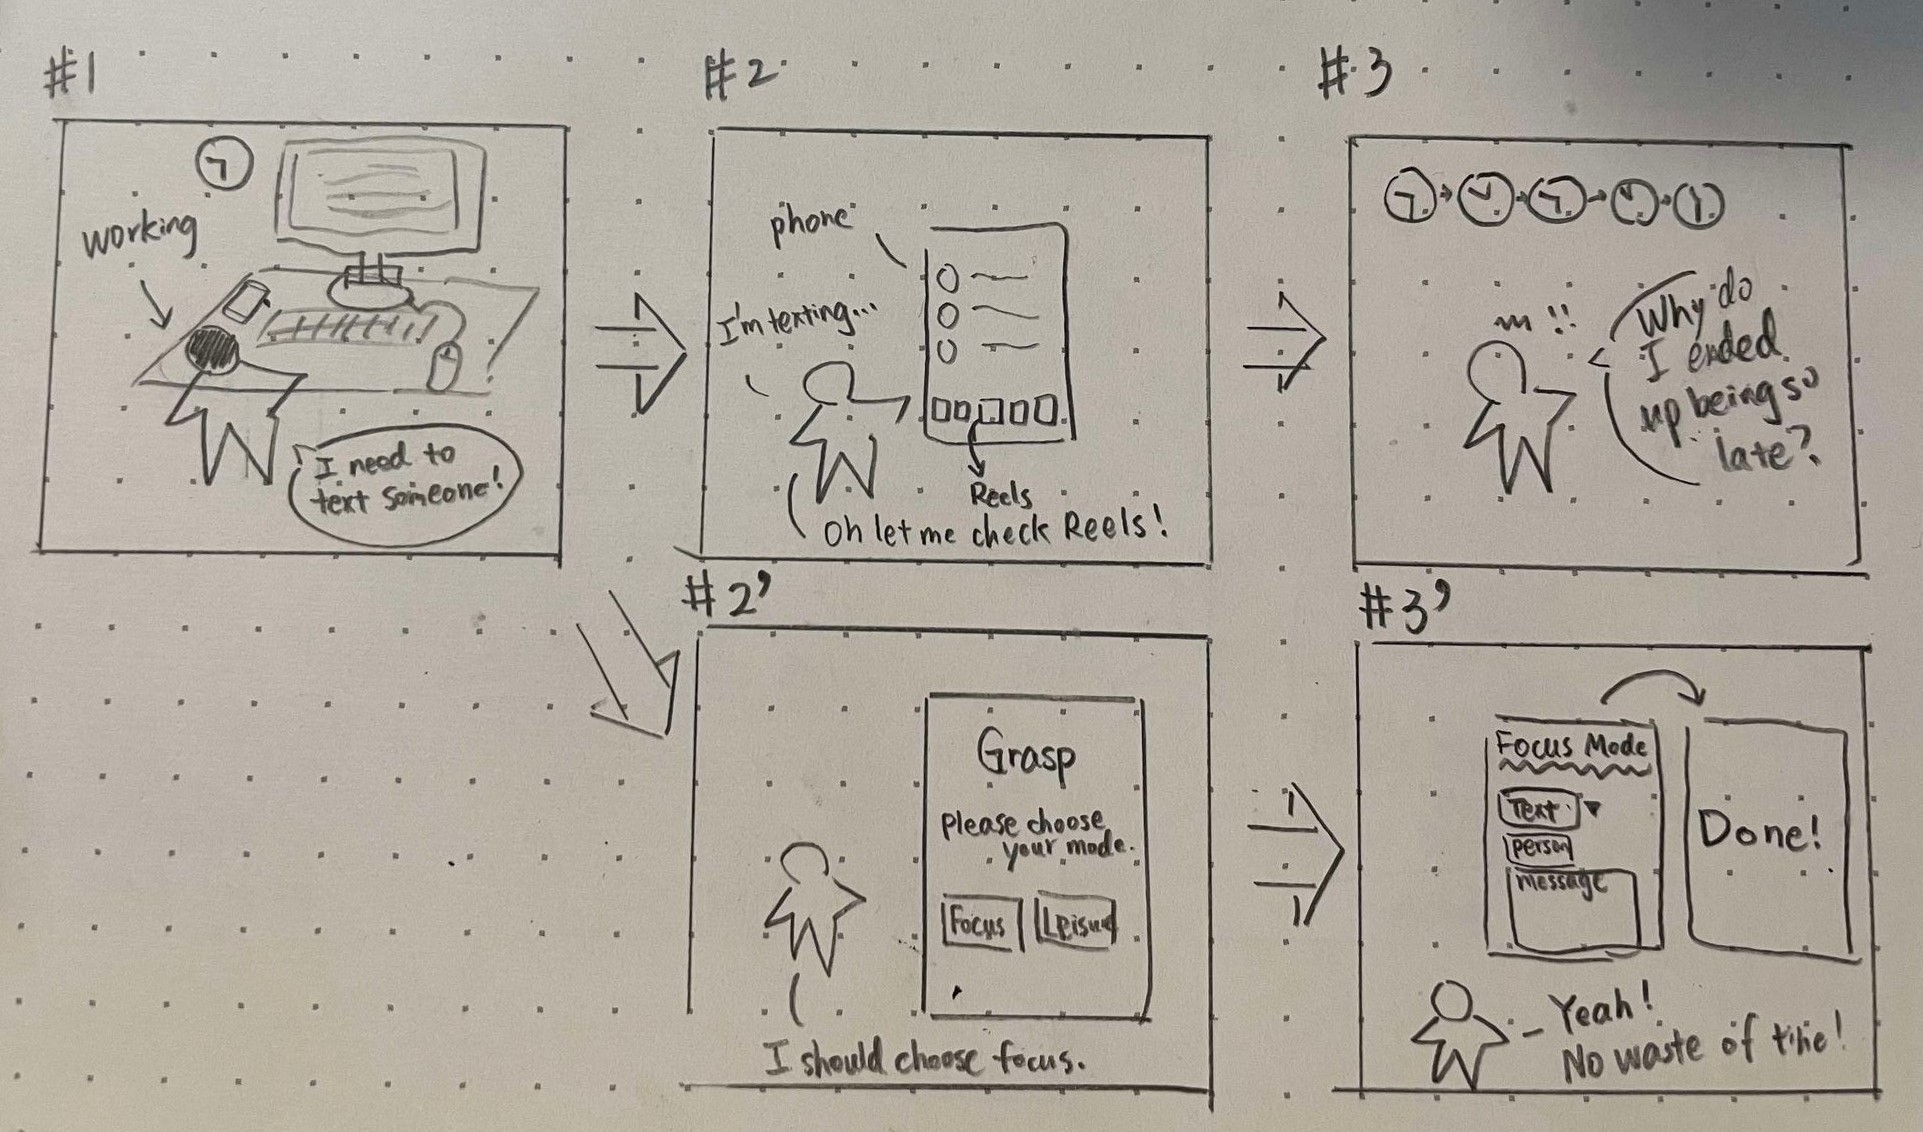 #1
working
I need to
text someone!
#2
phone
I'm texting...
Reels
Oh let me check Reels!
#3
!!
Why do
I ended
up being so
late?
#2'
Grasp
Please choose
your mode.
Focus
Leisure
I should choose focus.
#3'
Focus Mode
Text
person
message
Done!
Yeah!
No waste of time!